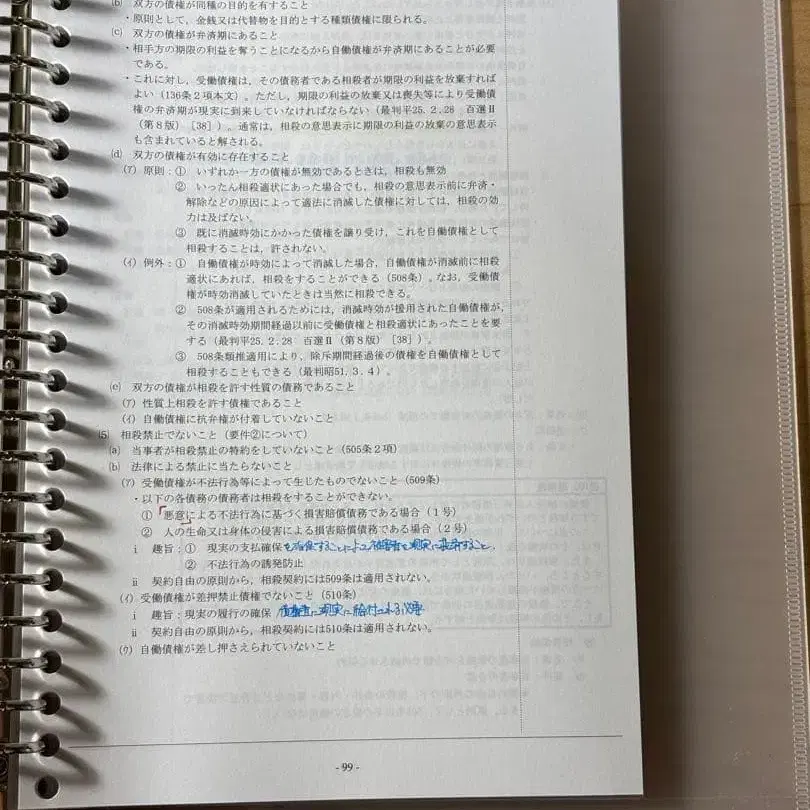 (b) 双方の債権が同種の目的を有すること
・原則として，金銭又は代替物を目的とする種類債権に限られる。
(c) 双方の債権が弁済期にあること
・相手方の期限の利益を奪うことになるから自働債権が弁済期にあることが必要
である。
・これに対し，受働債権は，その債務者である相殺者が期限の利益を放棄すれば
よい（136条２項本文）。ただし，期限の利益の放棄又は喪失等により受働債
権の弁済期が現実に到来していなければならない（最判平25.2.28 百選Ⅱ
（第８版）［38］）。通常は，相殺の意思表示に期限の利益の放棄の意思表示
も含まれていると解される。
(d) 双方の債権が有効に存在すること
(ｱ) 原則：① いずれか一方の債権が無効であるときは，相殺も無効
② いったん相殺適状にあった場合でも，相殺の意思表示前に弁済・
解除などの原因によって適法に消滅した債権に対しては，相殺の効
力は及ばない。
③ 既に消滅時効にかかった債権を譲り受け，これを自働債権として
相殺することは，許されない。
(ｲ) 例外：① 自働債権が時効によって消滅した場合，自働債権が消滅前に相殺
適状にあれば，相殺をすることができる（508条）。なお，受働債
権が時効消滅していたときは当然に相殺できる。
② 508条が適用されるためには，消滅時効が援用された自働債権が，
その消滅時効期間経過以前に受働債権と相殺適状にあったことを要
する（最判平25.2.28 百選Ⅱ（第８版）［38］）。
③ 508条類推適用により，除斥期間経過後の債権を自働債権として
相殺することもできる（最判昭51.3.4）。
(e) 双方の債権が相殺を許す性質の債務であること
(ｱ) 性質上相殺を許す債権であること
(ｲ) 自働債権に抗弁権が付着していないこと
(5) 相殺禁止でないこと（要件②について）
(a) 当事者が相殺禁止の特約をしていないこと（505条２項）
(b) 法律による禁止に当たらないこと
(ｱ) 受働債権が不法行為等によって生じたものでないこと（509条）
・以下の各債務の債務者は相殺をすることができない。
① 「悪意」による不法行為に基づく損害賠償債務である場合（１号）
② 人の生命又は身体の侵害による損害賠償債務である場合（２号）
ⅰ 趣旨：① 現実の支払確保を確保することによって被害者を現実に救済すること．
② 不法行為の誘発防止
ⅱ 契約自由の原則から，相殺契約には509条は適用されない。
(ｲ) 受働債権が差押禁止債権でないこと（510条）
ⅰ 趣旨：現実の履行の確保 債権者に現実に給付される必要
ⅱ 契約自由の原則から，相殺契約には510条は適用されない。
(ｳ) 自働債権が差し押さえられていないこと
- 99 -